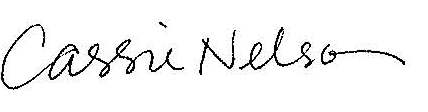 Cassie Nelson